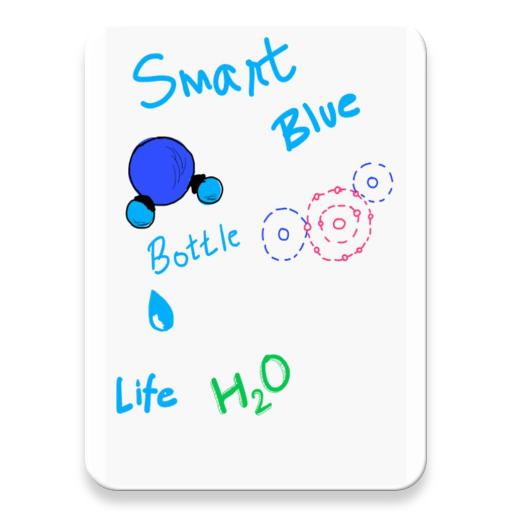 Smart
Blue
Bottle
Life H₂O